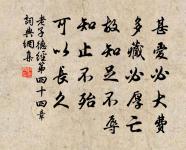 甚愛必大費
多藏必厚亡
故知足不辱
知止不殆
可以長久
老子德經第四十四章
詞典網集